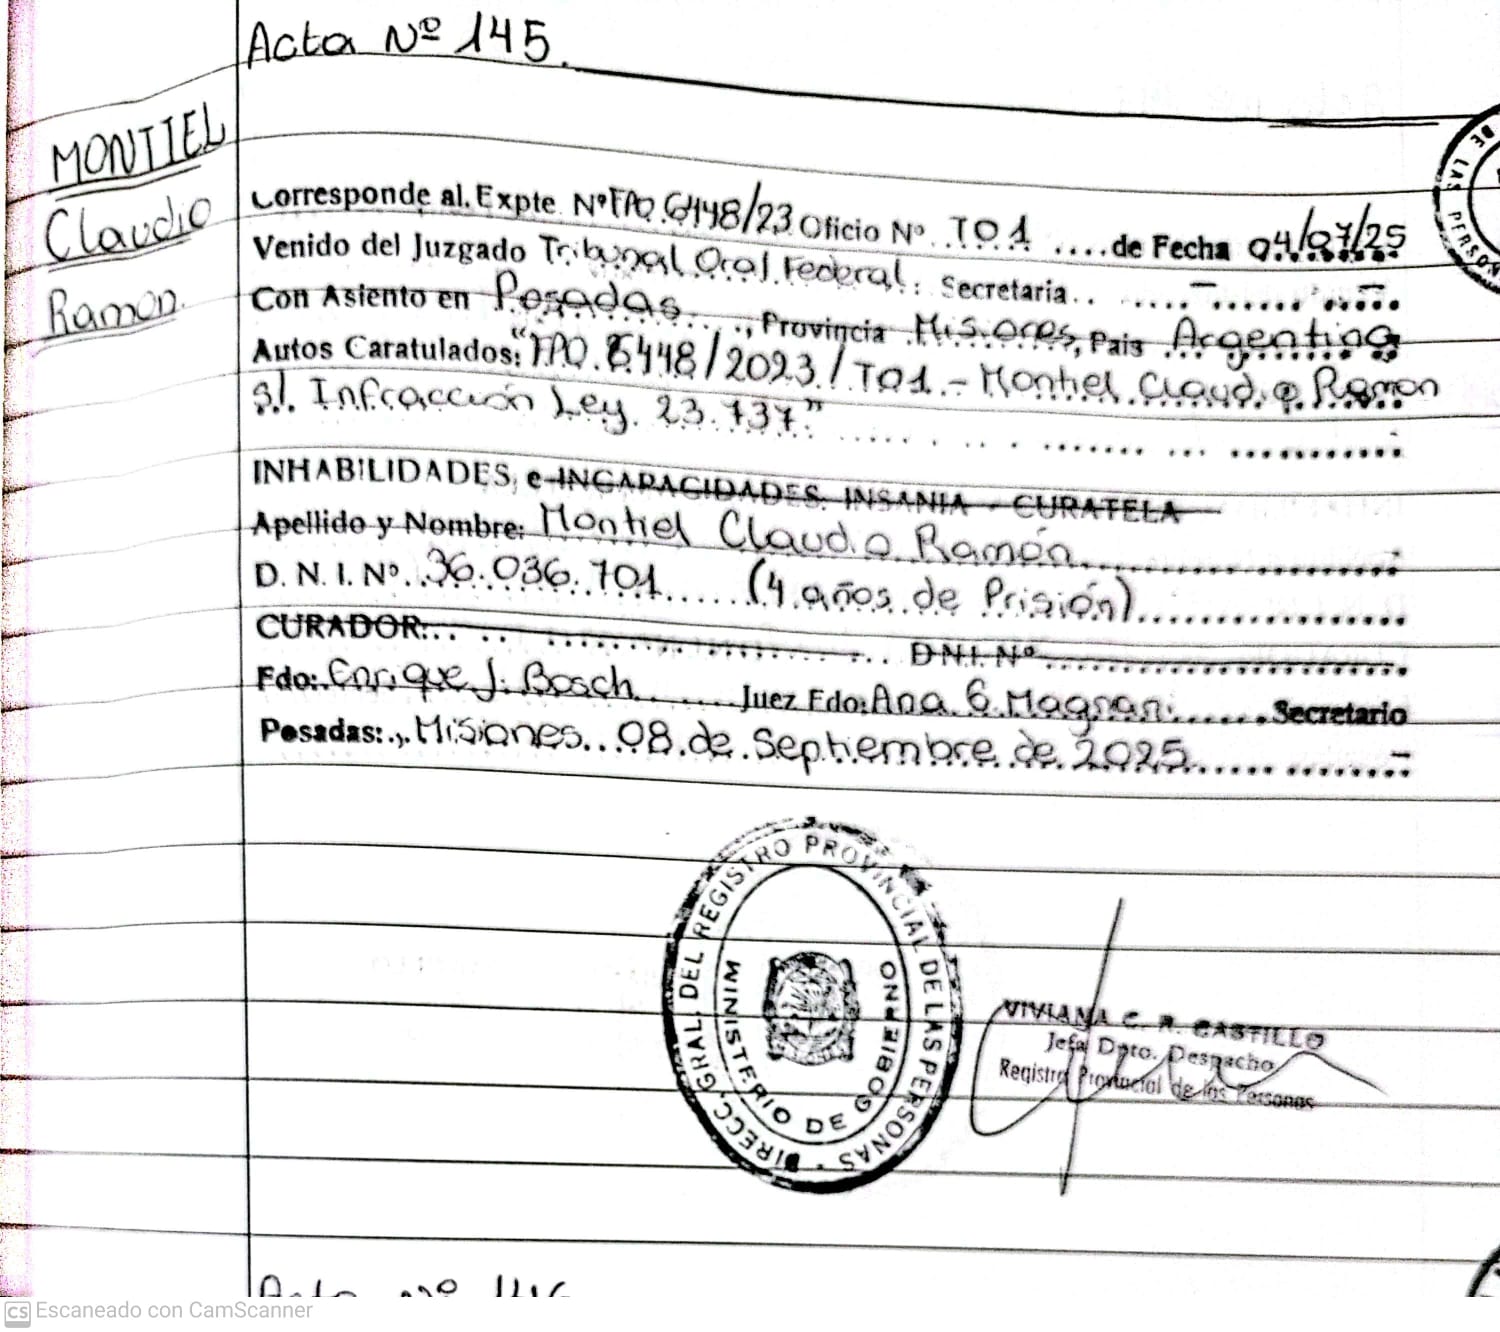 Acta Nº 145.
MONTIEL
Claudio
Ramón.
Corresponde al. Expte. Nº FPO. 6448/23 Oficio Nº TO1 .... de Fecha 04/07/25
Venido del Juzgado Tribunal Oral Federal. Secretaria.. –
Con Asiento en Posadas ...., Provincia Misiones, Pais Argentina
Autos Caratulados: "FPO. 6448/2023/TO1 - Montiel Claudio Ramon
s/. Infracción Ley. 23.737"
INHABILIDADES, e INCAPACIDADES. INSANIA - CURATELA
Apellido y Nombre: Montiel Claudio Ramón
D. N. I. Nº. 36.036.701 ...... (4 años de Prisión)
CURADOR: .... D.N.I. Nº
Fdo: Enrique J. Bosch ...... Juez Fdo: Ana 6. Magnan ...... Secretario
Posadas: ., Misiones.. 08 de Septiembre de 2025 ...... –
DIRECC. GRAL. DEL REGISTRO PROVINCIAL DE LAS PERSONAS
MINISTERIO DE GOBIERNO
VIVIANA C. R. CASTILLO
Jefa Dpto. Despacho
Registro Provincial de las Personas
DE LAS PERSON
Acta Nº 146
CS Escaneado con CamScanner